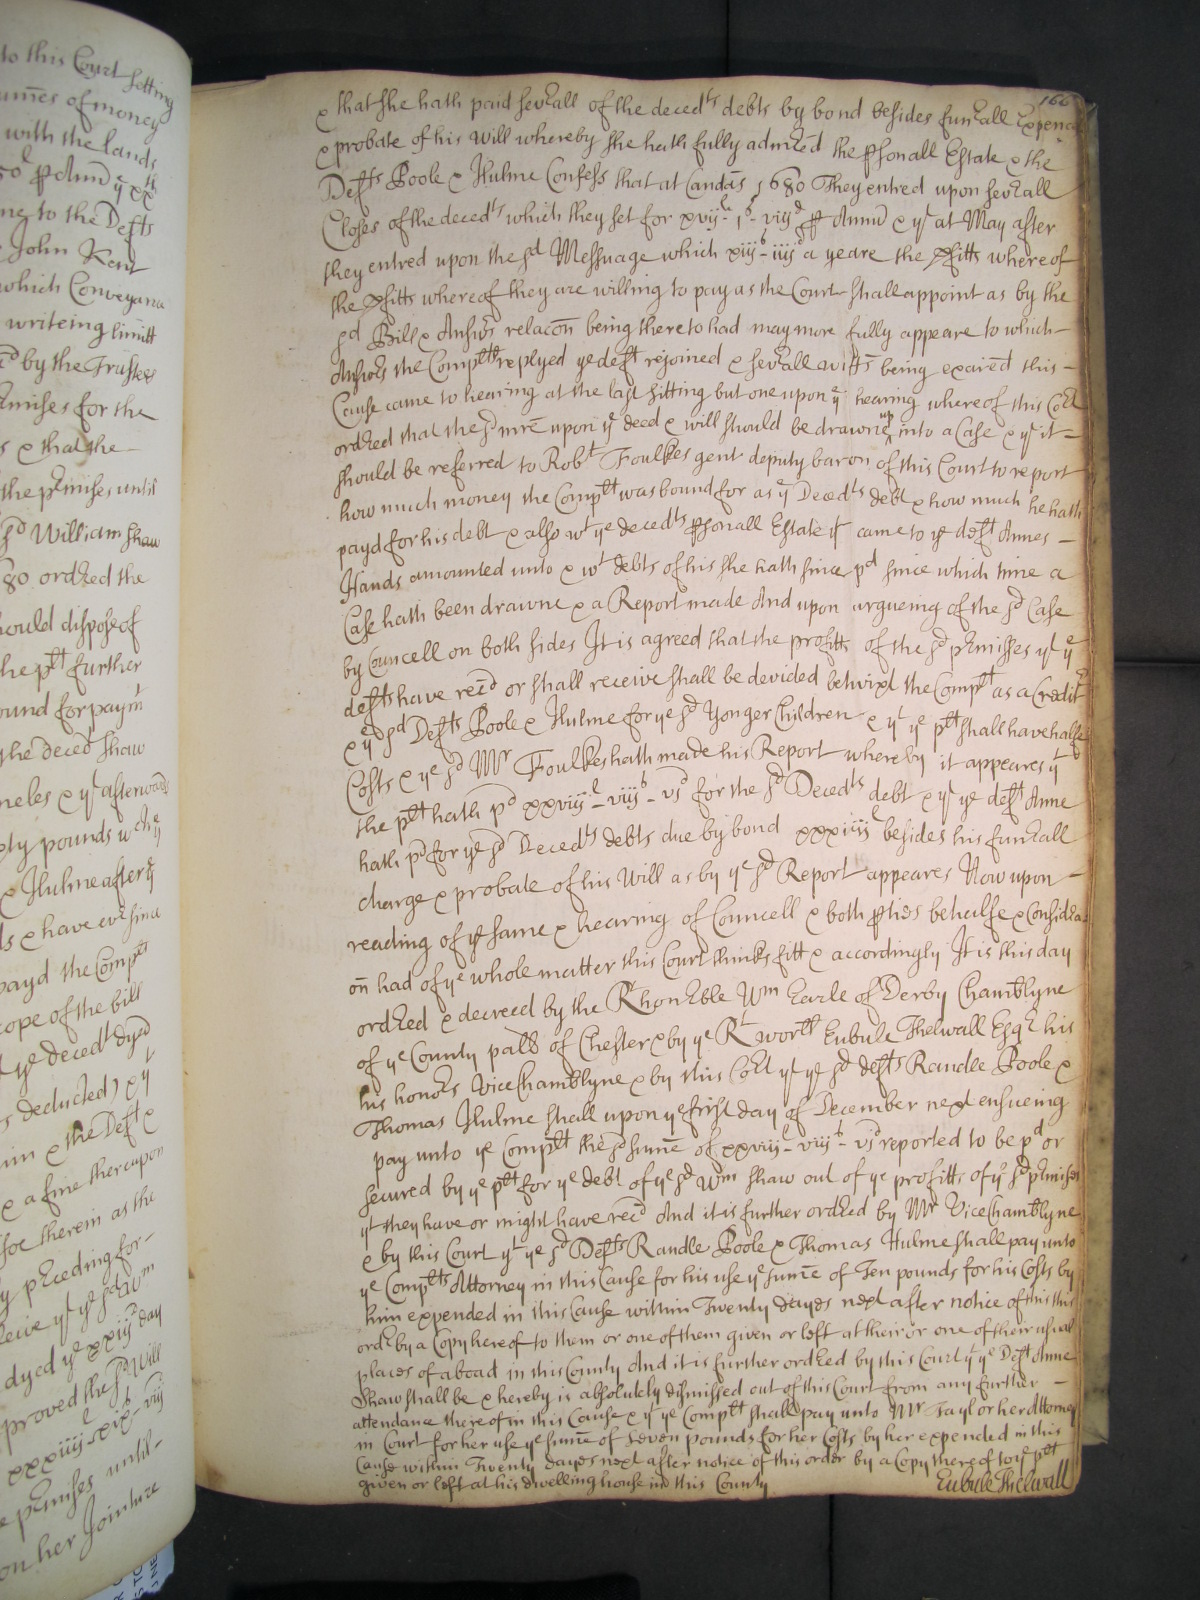 to this Court setting
sumes of money
with the lands
ꝑ Annu
to the Defts
John Kent
which Conveyance
writeing limitt
by the Trustees
for the
& that the
the pꝛmises until
sd William Shaw
80 ordꝛed the
should dispose of
the plt further
bound for paymt
the deced Shaw
& yt afterwards
pounds wch
& Hulme after
& have evꝛ since
payd the Complt
scope of the bill
ye decedt dyed
deducted) & yt
& the Deft &
& a fine thereupon
therein as the
pꝛceeding for-
receive yt ye sd Wm
dyed ye xxiijd day
proved the sd Will
xxxiiijl - xixs - viij
pꝛmises until-
on her Joynture
166
& that she hath paid sevꝛall of the decedts debts by bond besides funꝛall Expences
& probate of his Will whereby she hath fully admired the ꝑsonall Estate & the
Defts Poole & Hulme Confess that at Candas 1680 They entred upon sevꝛall
Closes of the decedts which they set for xvijl - js - viijd ꝑ Annu & yt at May after
they entred upon the sd Messuage which xiijs - iiijd a yeare the ꝓfitts whereof
the ꝓfitts whereof they are willing to pay as the Court shall appoint as by the
sd Bill & Answꝛs relacon being thereto had may more fully appeare to which-
Answꝛs the Complt replyed ye deft rejoined & sevꝛall witts being exaied this -
Cause came to hearing at the last sitting but one upon ye hearing whereof this Cort
ordꝛed that the sd mre upon ye deed & will should be drawne up into a Case & yt it -
should be referred to Robt Foulkes gent deputy baron of this Court to report
how much money the Complt was bound for as ye Decedts debt & how much he hath
payd for his debt & also wt ye decedts ꝑsonall Estate yt came to ye deft Annes -
Hands amounted unto & wt debts of his she hath since pd since which time a
Case hath been drawne & a Report made And upon argueing of the sd Case
by Councell on both sides It is agreed that the profitts of the sd pꝛmisses yt ye
defts have recd or shall receive shall be devided betwixt the Complt as a Creditr
& ye sd Defts Poole & Hulme for ye sd Yonger Children & yt ye plt shall have halfe
Costs & ye sd Mr Foulkes hath made his Report whereby it appeares yt
the plt hath pd xxviijl - viijs - vd for the sd Decedts debt & yt ye deft Anne
hath pd for ye sd Decedts debts due by bond xxxiiijl besides his funꝛall
charge & probate of his Will as by ye sd Report appeares Now upon -
reading of ye same & hearing of Councell & both ꝑties behalfe & Considꝛa
on had of ye whole matter this Court thinks fitt & accordingly It is this day
ordꝛed & decreed by the Rt honꝛble Wm Earle of Derby Chamblyne
of ye County palt of Chester & by ye Rt worll Eubule Thelwall Esqꝛ his
his honors Vice Chamblyne & by this Cort yt ye sd defts Randle Poole &
Thomas Hulme shall upon ye first day of December next ensueing
pay unto ye Complt the sd sume of xxviijl - viijs - vd reported to be pd or
secured by ye plt for ye debt of ye sd Wm Shaw out of ye profitts of ye sd pꝛmises
yt they have or might have recd And it is further ordꝛed by Mr Vice Chamblyne
& by this Court yt ye sd Defts Randle Poole & Thomas Hulme shall pay unto
ye Complts Attorney in this Cause for his use ye sume of Ten pounds for his Costs by
him expended in this Cause within Twenty dayes next after notice of this this
ordꝛ by a Copy hereof to them or one of them given or left at their or one of their usual
places of aboad in this County And it is further ordꝛed by this Court yt ye Deft Anne
Shaw shall be & hereby is absolutely dismissed out of this Court from any further -
attendance thereof in this Cause & yt ye Complt shall pay unto Mr Taylor her Attorney
in Court for her use ye sume of Seven pounds for her Costs by her expended in this
Cause within Twenty dayes next after notice of this order by a Copy thereof to ye plt
given or left at his dwelling house in this County
Eubule Thelwall